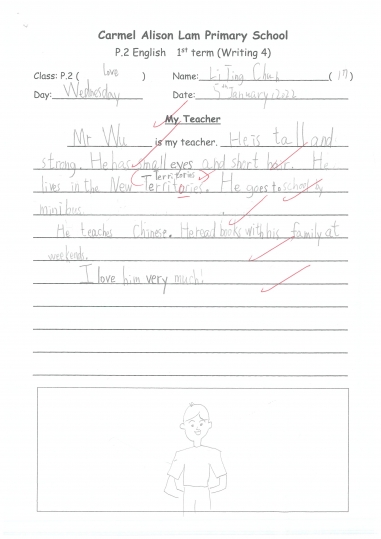 Carmel Alison Lam Primary School
P.2 English 1st term (Writing 4)
Class: P.2 ( Love ) Name: Li Jing Chun ( 17 )
Day: Wednesday Date: 5th January, 2022
My Teacher
Mr Wu is my teacher. He is tall and
strong. He has small eyes and short hair. He
Territories
lives in the New Territories. He goes to school by
minibus.
He teaches Chinese. He read books with his family at
weekends.
I love him very much!